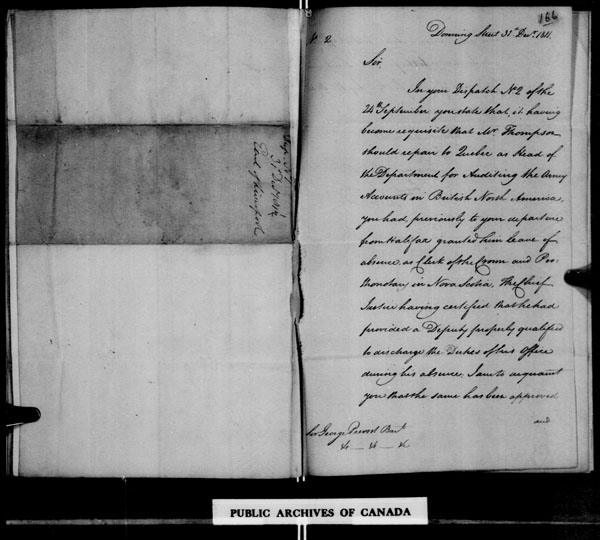 166
Nº 2
Downing Street 31st Decr. 1811.
Sir,
In your Dispatch No 2 of the
24th September you state that, it having
become requisite that Mr. Thompson
should repair to Quebec as Head of
the Department for Auditing the Army
Accounts in British North America,
you had, previously to your departure
from Halifax granted him leave of
absence, as Clerk of the Crown and Pro-
thonotary in Nova Scotia, The Chief
Justice having certified that he had
provided a Deputy properly qualified
to discharge the Duties of his Office
during his absence. I am to acquaint
you that the same has been approved
and
Sir George Prevost Bart.
&c — &c — &c
31 Decr 1811
Earl of Liverpool
PUBLIC ARCHIVES OF CANADA